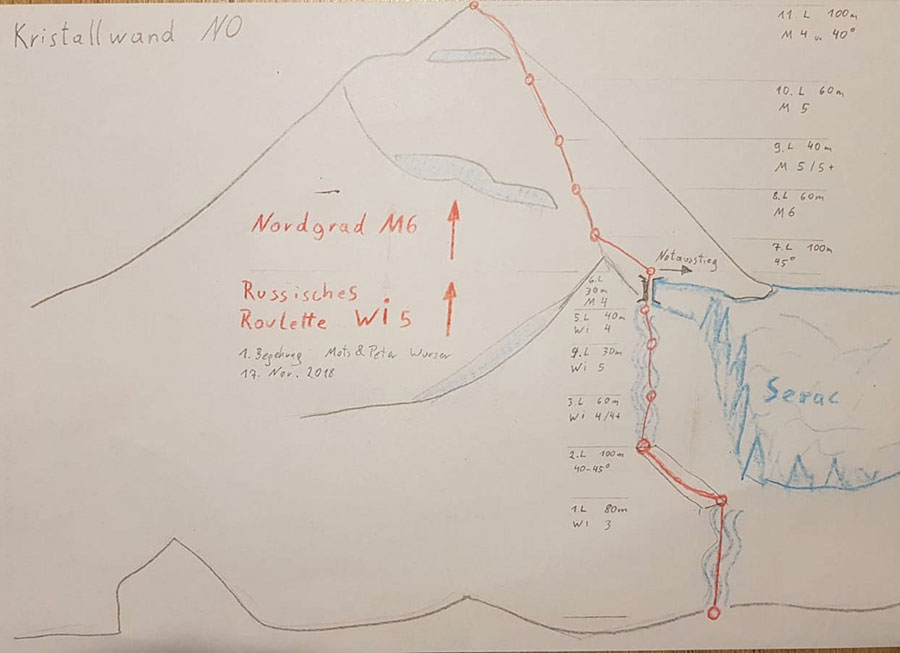 Kristallwand NO
11. L 100m
M 4 u. 40°
10. L 60m
M 5
9. L 40m
M 5/5+
8. L 60m
M6
7. L 100m
45°
Nordgrad M6
Notausstieg
6. L
30m
M 4
Russisches
Roulette Wi 5
1. Begehung Mots & Peter Wurzer
17. Nov. 2018
5. L 40m
Wi 4
4. L 30m
Wi 5
3. L 60m
Wi 4/4+
2. L 100m
40-45°
1. L 80m
Wi 3
Serac